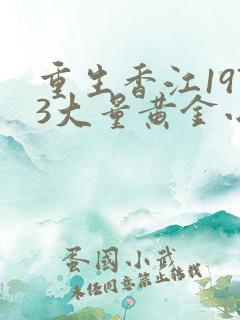 重生香江19
3大量黄金
蛋国小武
未经同意禁止转载